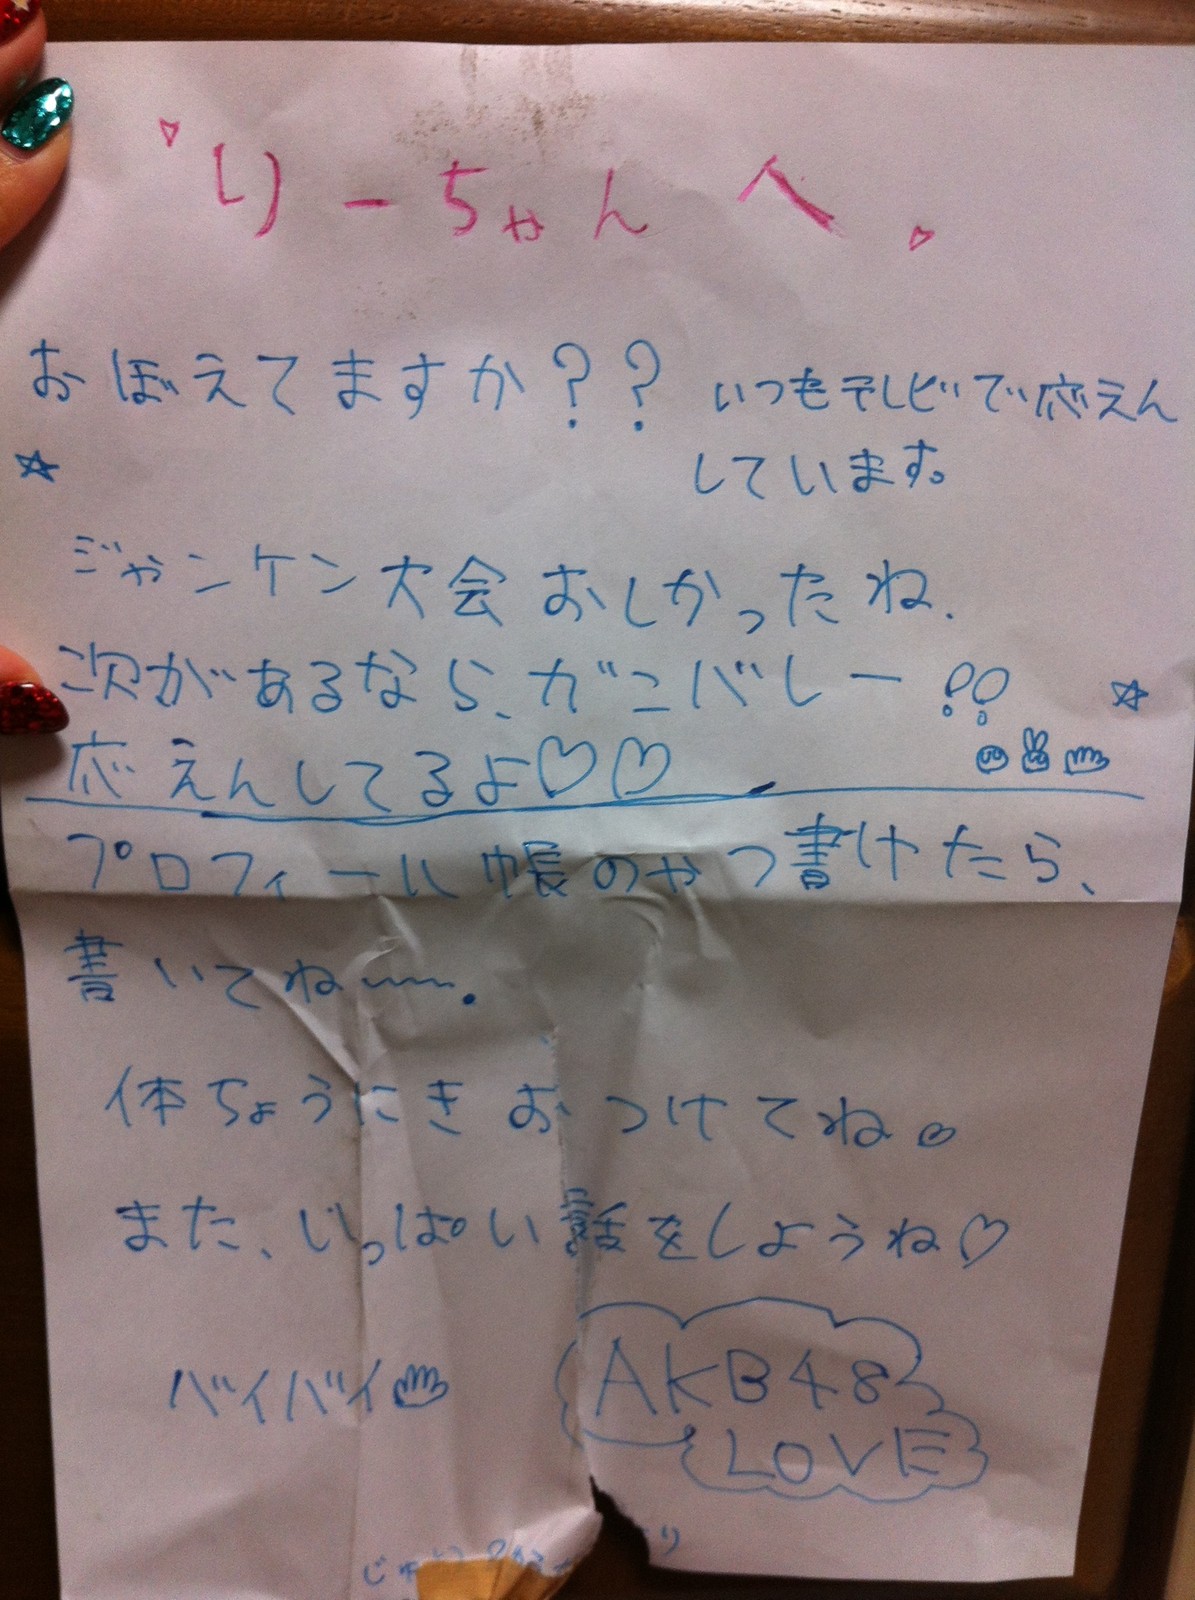 りーちゃんへ。
おぼえてますか?? いつもテレビで応えん
しています。
ジャンケン大会おしかったね.
次があるなら、ガンバレー!!
応えんしてるよ♡♡
プロフィール帳のやつ書けたら、
書いてね〜〜.
体ちょうにきおつけてね♡
また、いっぱい話をしようね♡
バイバイ
AKB48
LOVE